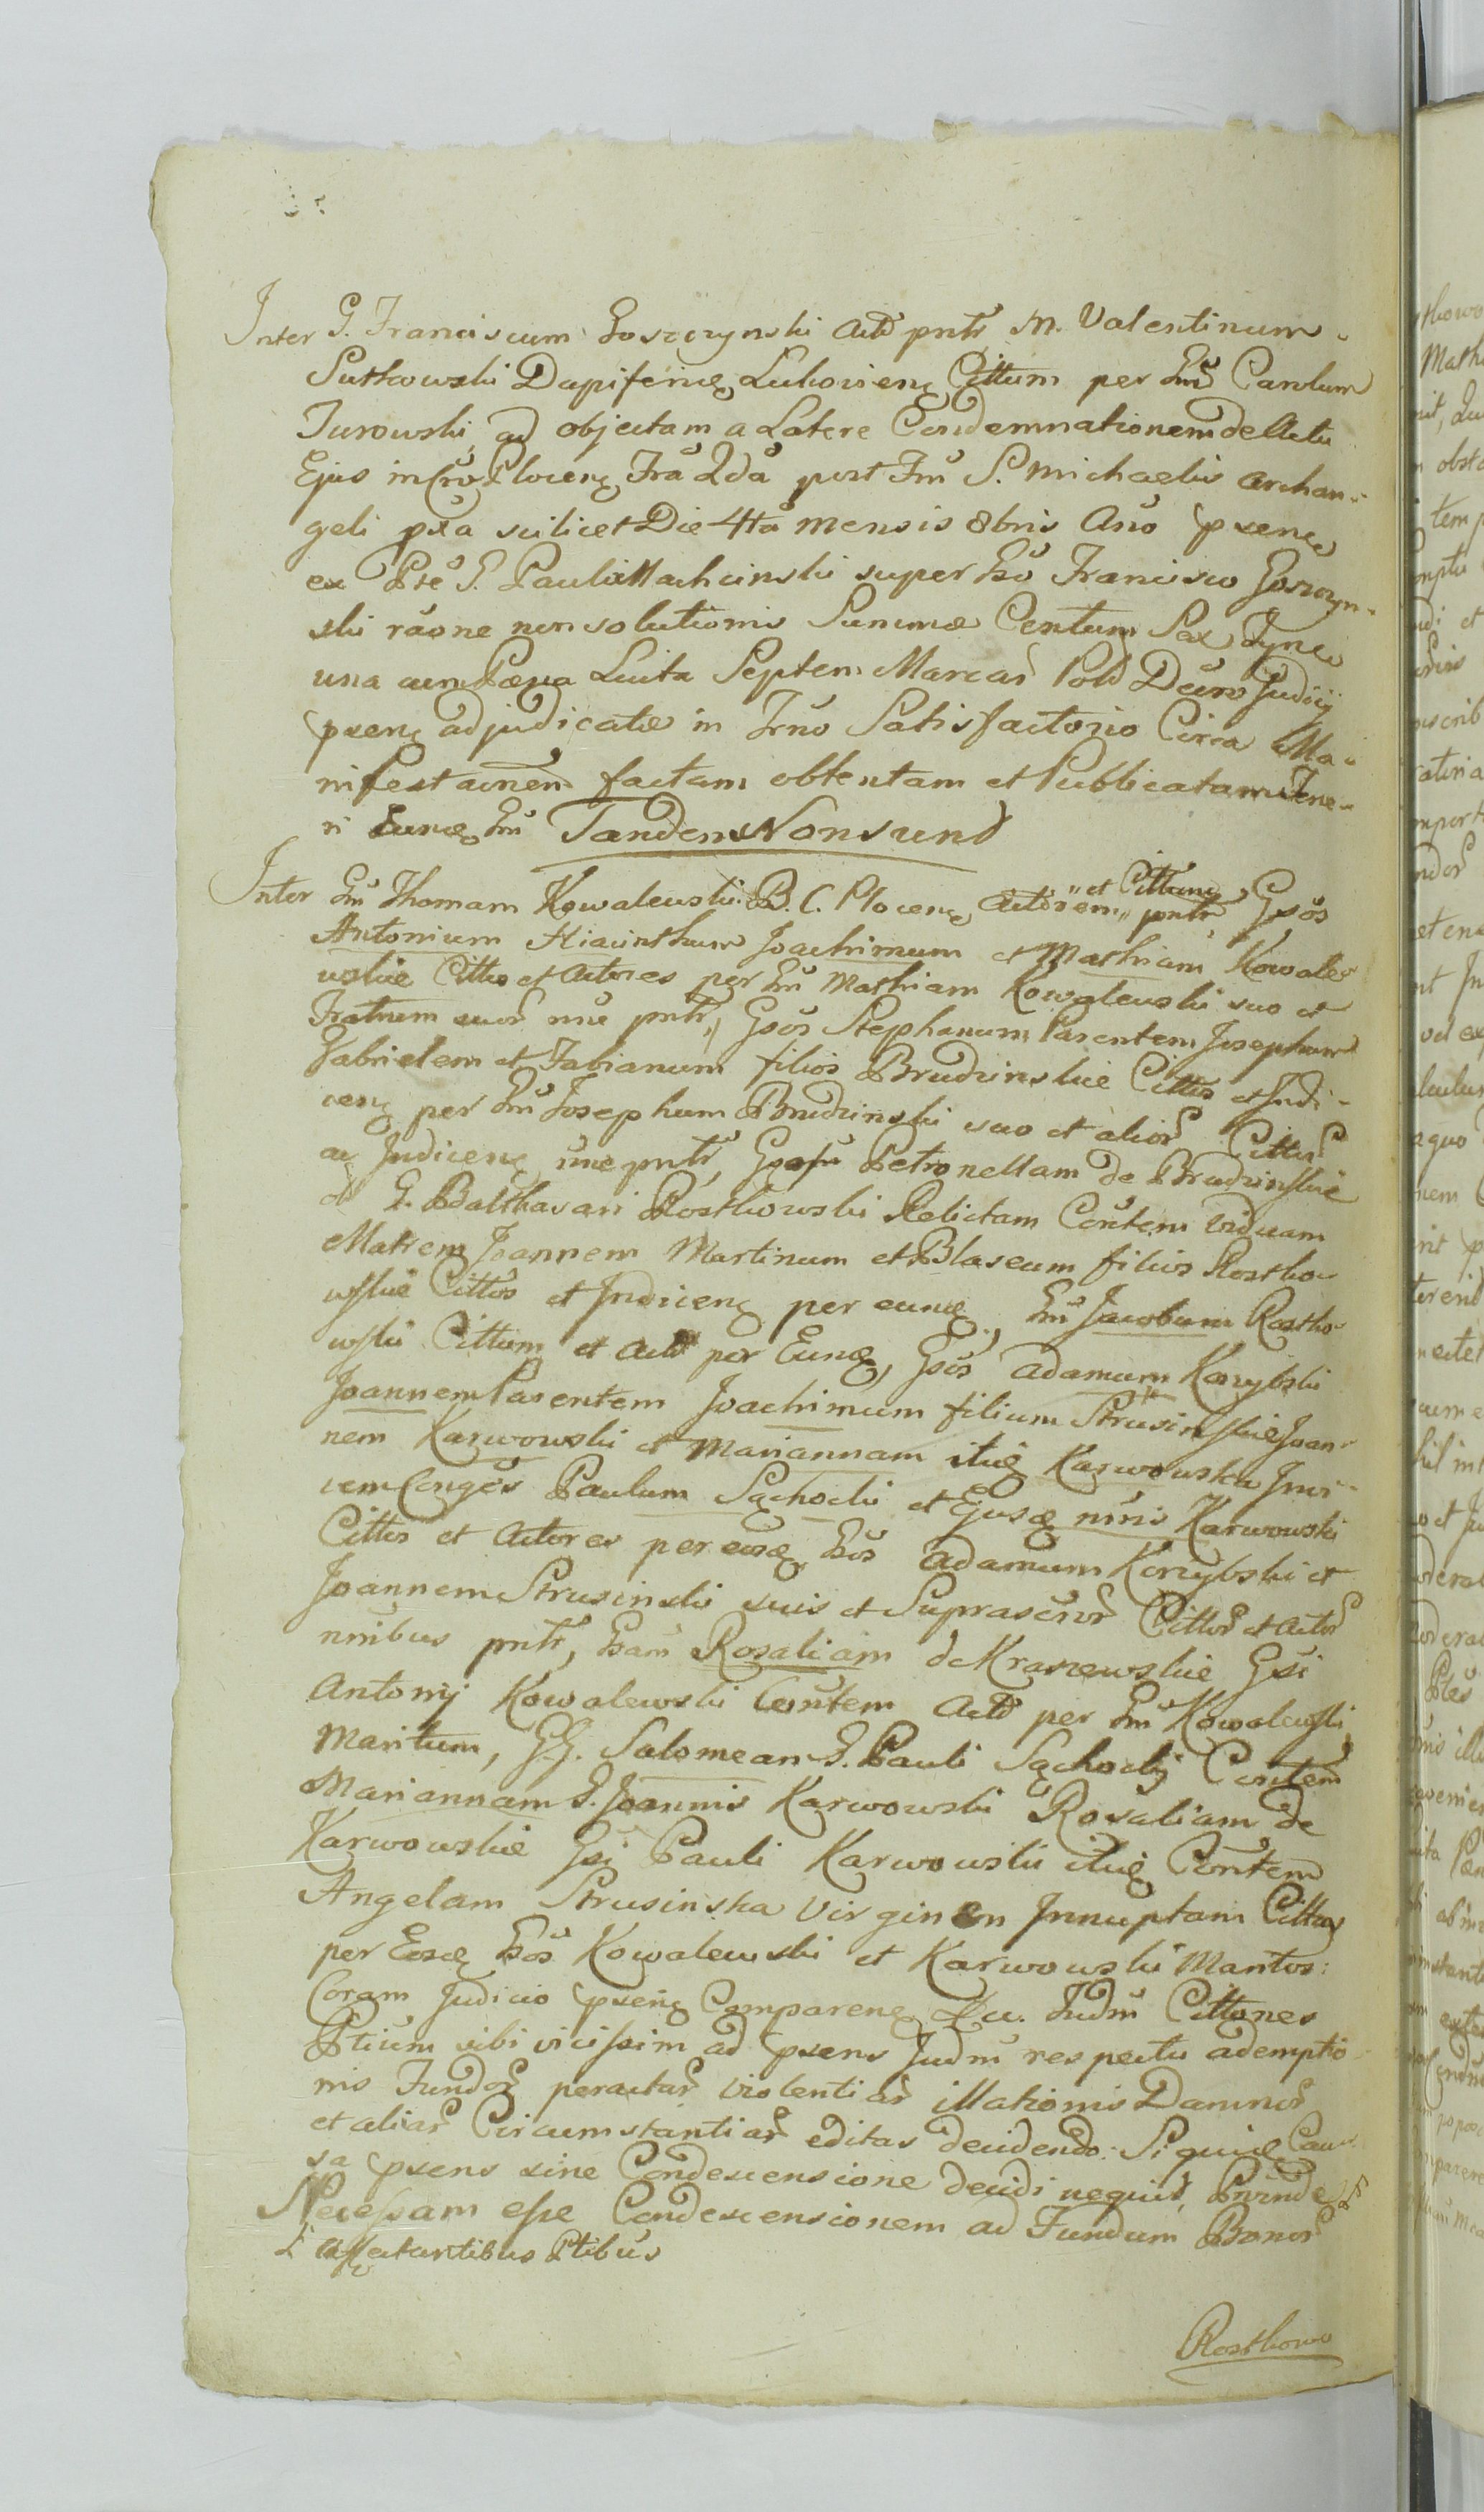 Inter G. Franciscum Goszczynski Actō pntr̄, M. Valentinum
Sutkowski Dapiferuę Lukovienę Cittum per Gnū Carolum
Turowski, ad objectam a Latere Condemnationem de Actu
Ejus in Crō Plocenę Frā 2dā post Fm̄ S. Michaelis Archan-
geli pxa scilicet Die 4tā Mensis 8bris Anō pxenę
ex Pte G. Pauli Machcinski super Gsō Francisco Goszczyn-
ski rāone non solutionis Summæ Centum Sex Tynf
una cum Pæna Luita Septem Marcar̄ Pold Decr̄o Judicij
pxenę adjudicatæ in Trn̄o Satisfactorio Circa Ma-
nifestaōnem factam obtentam et Publicatam Tene-
ri Eunę Gm̄ Tandem Non sund
Inter Gm̄ Thomam Kowalewski B. C. Plocenę Actōrem et Cittum pntr̄, Gsōs
Antonium Hiacinthum Joachimum et Mathiam Kowale-
wskie Cittos et Actores per Gm̄ Mathiam Kowalewski suo et
Fratrum suor̄ nn̄e pntr̄, Gsōs Stephanum Parentem Josephum
Gabrielem et Fabianum filios Brudzinskie Cittos et Judi-
cenę per Gm̄ Josephum Brudzinski suo et alior̄ Cittor̄
ac Judicenę nn̄e pntr̄, Petronellam de Brudzinskie
G. Balthasari Rostkowski Relictam Cōntem Viduam
Matrem Joannem Martinum et Blaseum filios Rostko-
wskie Cittos et Judicenę per eunę, Gm̄ Jacobum Rostko-
wski Cittum et Actō per Eunę, Gsōs Adamum Korzybski
Joannem Parentem Joachimum filium Strusinskie Joan-
nem Karwowski et Mariannam itię Karwowska Invi-
cem Conges Paulum Sąchocki et Ejusę nīnis Karwowski
Cittos et Actores per eosę Gsōs Adamum Korzybski et
Joannem Strusinski suis et Suprascr̄or̄ Cittor̄ et Actor̄
nnībus pntr̄, Gsam Rosaliam de Kraszewskie Gsi
Antonij Kowalewski Cōntem Actō per Gm̄ Kowalewski
Maritum, GG. Salomeam G. Pauli Sąchocky Cōntem
Mariannam G. Joannis Karwowski Rosaliam de
Karwowskie Gsi Pauli Karwowski itię Cōntem
Angelam Strusinska Virginem Innuptam Cittas
per Eosę Gsōs Kowalewski et Karwowski Maritos:
Coram Judicio pxenę Comparenę Judm̄ Cittones
Ptium sibi vicissim ad pxens Judm̄ respectu ademptio-
nis Fundor̄ peractar̄ Violentiar̄ illationis Damnor̄
et aliar̄ Circumstantiar̄ editas decidendo: Siquidę Cau-
sa pxens sine Condescensione decidi nequid, Proinde
Necessam esse Condescensionem ad Fundum Bonor̄
affectantibus Ptibus
Rostkowo